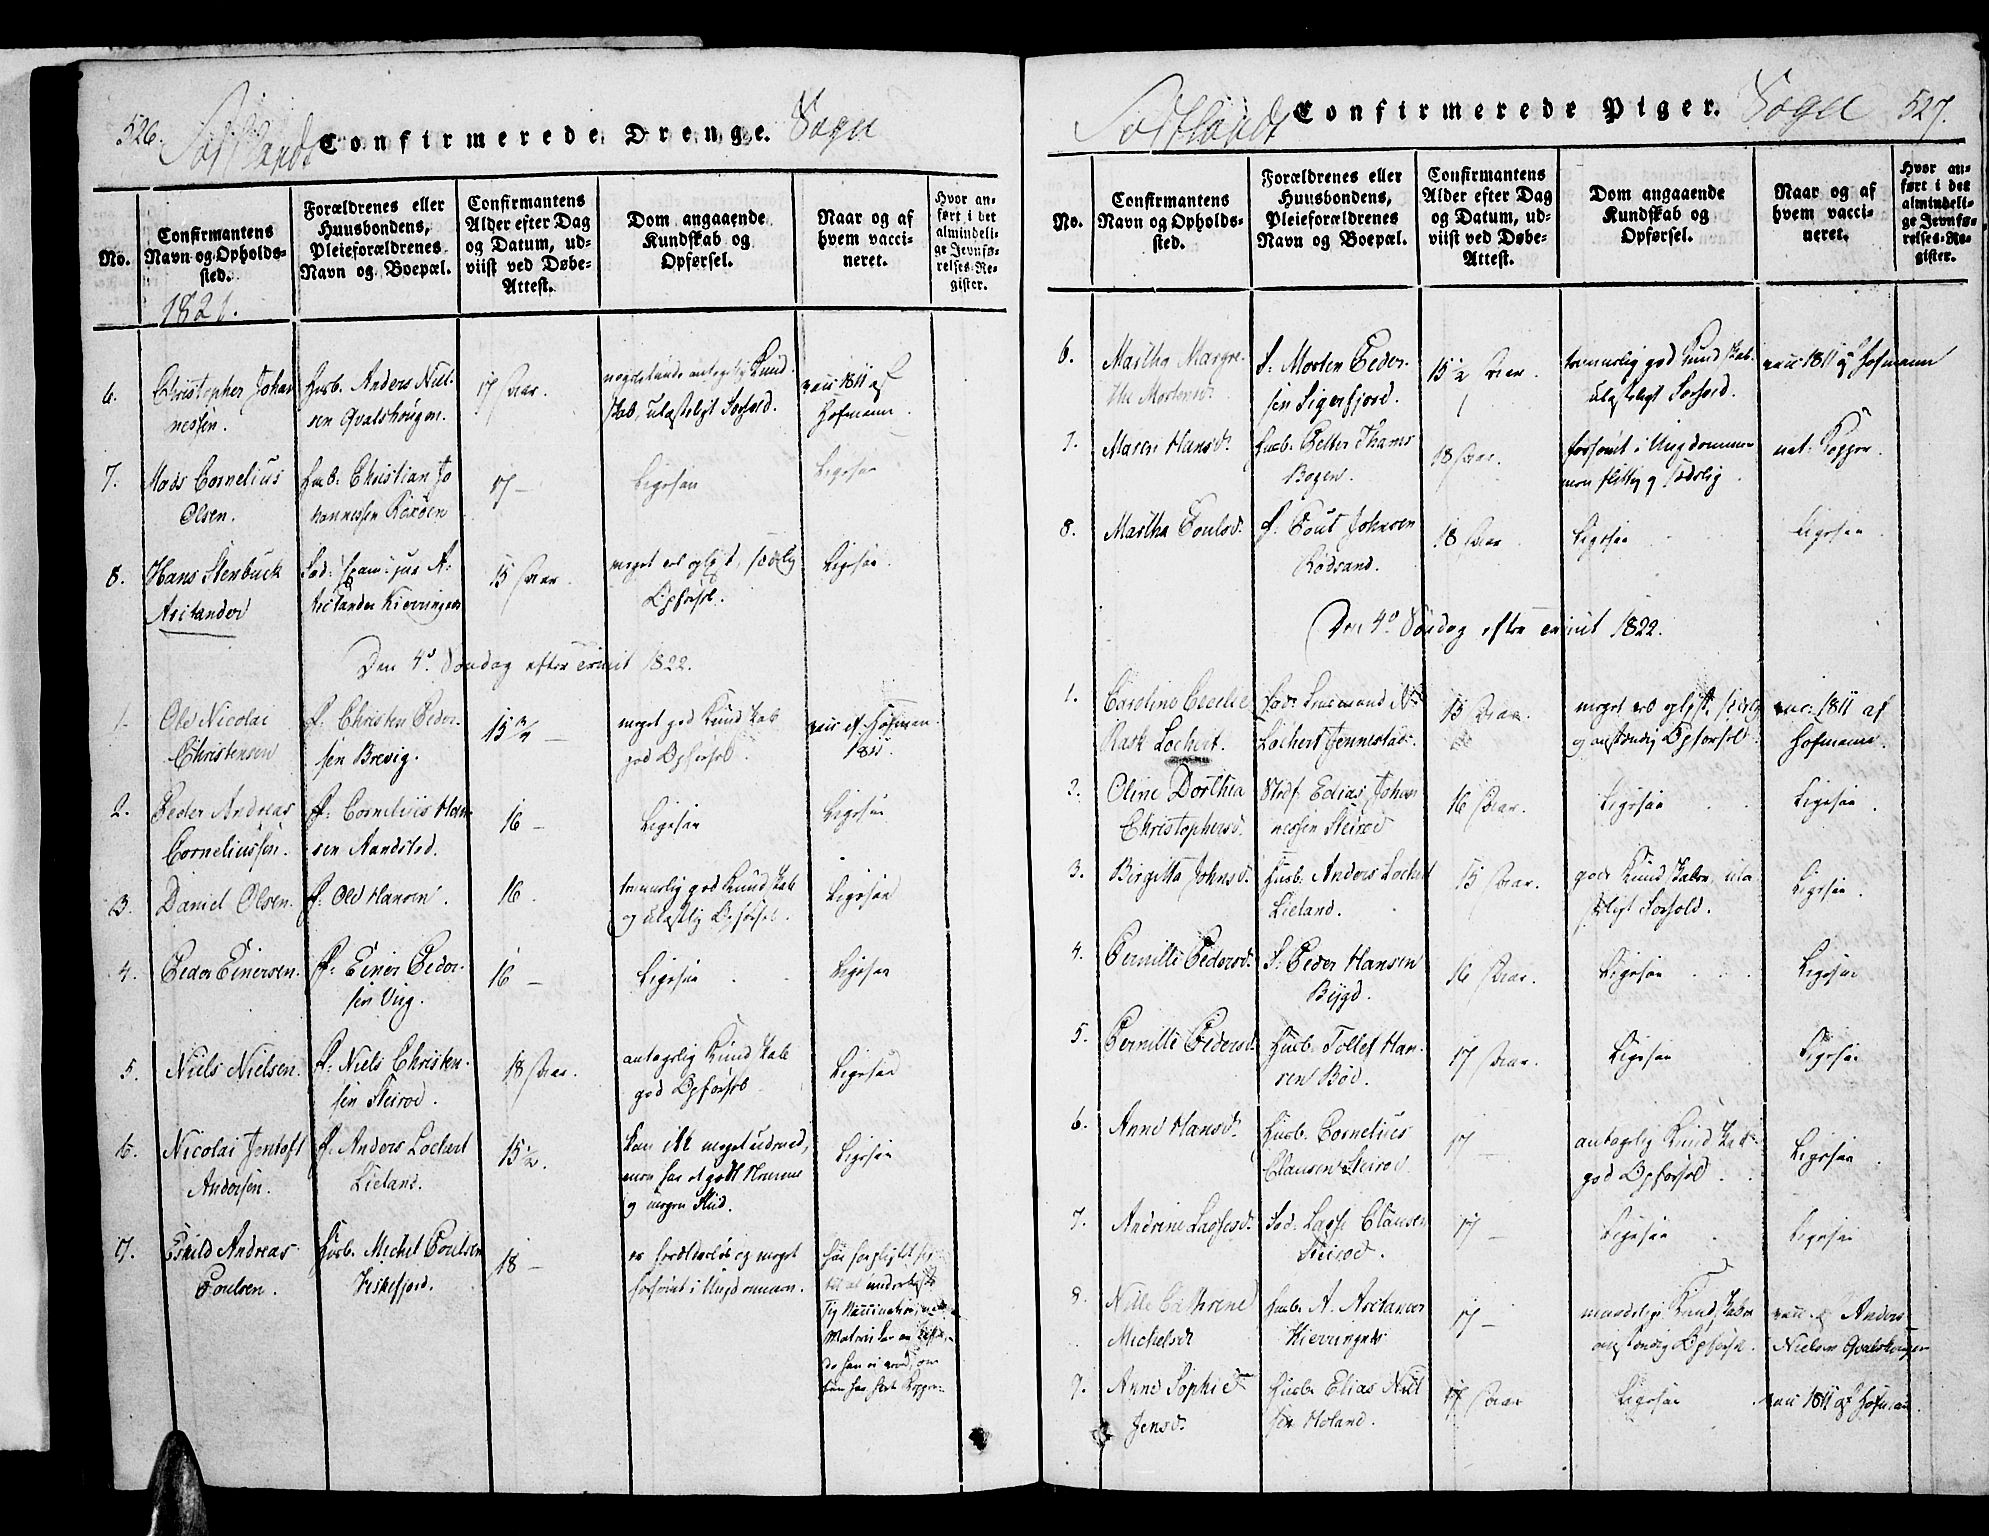 526.
Sortlandt
Confirmerede Drenge.
Sogn
No.
Confirmantens
Navn og Opholds-
sted.
Forældrenes eller
Huusbondens,
Pleieforældrenes
Navn og Boepæl.
Confirmantens
Alder efter Dag
og Datum, ud-
viist ved Døbe-
Attest.
Dom angaaende
Kundskab og
Opførsel.
Naar og af
hvem vacci-
neret.
Hvor an-
ført i det
almindeli-
ge Jevnfø-
relses-Re-
gister.
1821.
6.
Christopher Johan
nessen.
Huusb. Anders Niel-
sen Qvalshougen.
17 Aar.
nogenlunde antagelig Kund-
skab ulasteligt Forhold.
vacc 1811 af
Hofmann.
7.
Mads Cornelius
Olsen.
Huusb. Christian Jo
hannessen
17 —
Ligesaa
Ligesaa
8.
Hans Stenbuck
Arctander
A:
Arctander Kierringnes
15 Aar.
meget vel oplyst, sædelig
Opførsel.
Ligesaa.
Den 4de Søndag efter Trinit 1822.
1.
Ole Nicolai
Christensen
F. Christen Peder-
sen Brevig.
15 3/4 —
meget god Kundskab
god Opførsel.
vacc af Hofman
1811
2.
Peder Andreas
Corneliussen.
F. Cornelius Han
sen Aandsted.
16 —
Ligesaa
Ligesaa
3.
Daniel Olsen.
F. Ole Hansen.
16.
temmelig god Kundskab
og ulastlig Opførsel.
Ligesaa
4.
Peder Einersen.
F. Einer Peder-
sen Vig.
16 —
Ligesaa
Ligesaa
5.
Niels Nielsen.
F. Niels Christen-
sen Steiroe.
18 Aar.
antagelig Kundskab
god Opførsel
Ligesaa
6.
Nicolai Jentoft
Andersen.
F. Anders Lochert
Lieland.
15 1/2.
kan ikke meget udvend,
men har et godt Nemme
og megen Flid.
Ligesaa
7.
Eskild Andreas
Poulsen.
Huusb. Michel Poulsen
Viskefjord.
18 —
er forældreløs og meget
forsømt i Ungdommen.
527.
Sortlandt
Confirmerede Piger.
Sogn
No.
Confirmantens
Navn og Opholds-
sted.
Forældrenes eller
Huusbondens,
Pleieforældrenes
Navn og Boepæl.
Confirmantens
Alder efter Dag
og Datum, ud-
viist ved Døbe-
Attest.
Dom angaaende
Kundskab og
Opførsel.
Naar og af
hvem vacci-
neret.
Hvor an-
ført i det
almindeli-
ge Jevnfø-
relses-Re-
gister.
6.
Martha Margre-
the Mortensd.
F. Morten Peder-
sen Sigerfjord.
15 1/2 Aar.
temmelig god Kundskab
ulasteligt Forhold.
vacc 1811 af Hofmann
7.
Maren Hansd.
Huusb. Petter Thams
Bogen.
18 Aar.
forsømt i Ungdommen
men flittig og sædelig
nat. Kopper.
8.
Martha Poulsd.
F. Poul Johnsen
Rødsand.
18 Aar
Ligesaa
Ligesaa
Den 4de Søndag efter Trinit 1822.
1.
Caroline Cecelie
Rask Lochert.
Lochert Jennestad.
15 Aar.
meget vel oplyst, sædelig
og anstændig Opførsel.
vacc. 1811 af
Hofmann.
2.
Oline Dorthea
Christophersd.
Stedf. Edias Johan
nessen Steiroe
16 Aar.
Ligesaa
Ligesaa
3.
Birgitta Johnsd.
Huusb. Anders Lochert
Lieland.
15 Aar.
gode Kundskaber, ula
steligt Forhold.
Ligesaa.
4.
Pernille Pedersd.
F. Peder Hansen
Bygd.
16 Aar.
Ligesaa
Ligesaa
5.
Pernille Pedersd.
Huusb. Tollef Han-
sen Bøe.
17 Aar.
Ligesaa
Ligesaa
6.
Anne Hansd.
Huusb. Cornelius
Clausen Steiroe
17 —
antagelig Kundskab
god Opførsel.
Ligesaa
7.
Andrine Lassesd.
Fad. Lasse Clausen
Steiroe.
17 —
Ligesaa
Ligesaa
8.
Nille Cathrine
Michelsd
Huusb. A. Arctander
Kierringnes
17 —
maadelige Kundskaber
anstændig Opførsel.
vacc. af Anders
Nielsen Qvalshougen
9.
Anne Sophie
Jensd.
Huusb. Elias Niel
sen Holand.
17 Aar
Ligesaa
vacc 1811 af Hofman